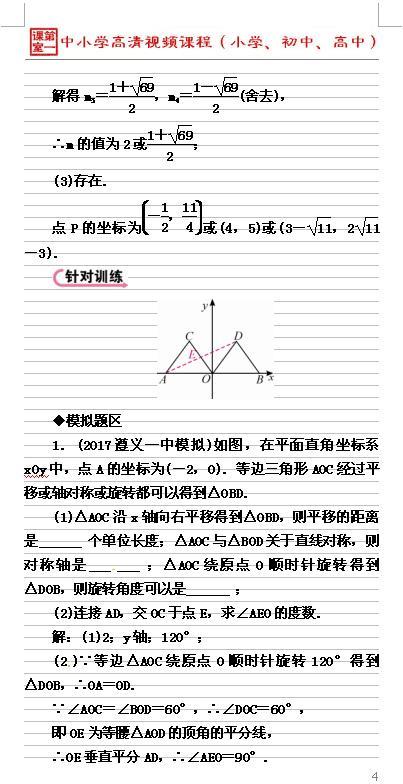 课第室一 中小学高清视频课程（小学、初中、高中）
解得 m₃=(1+√69)/2，m₄=(1-√69)/2(舍去)，
∴m 的值为 2 或(1+√69)/2；
(3)存在．
点 P 的坐标为(-1/2，11/4)或(4，5)或(3-√11，2√11
-3)．
针对训练
y
C D
E
A O B x
◆模拟题区
1．(2017遵义一中模拟)如图，在平面直角坐标系
xOy中，点A的坐标为(-2，0)．等边三角形AOC经过平
移或轴对称或旋转都可以得到△OBD.
(1)△AOC沿x轴向右平移得到△OBD，则平移的距离
是______ 个单位长度；△AOC与△BOD关于直线对称，则
对称轴是______ ；△AOC绕原点O顺时针旋转得到
△DOB，则旋转角度可以是______ ；
(2)连接AD，交OC于点E，求∠AEO的度数．
解：(1)2；y轴；120°；
(2)∵等边△AOC绕原点O顺时针旋转120°得到
△DOB，∴OA=OD.
∵∠AOC=∠BOD=60°，∴∠DOC=60°，
即OE为等腰△AOD的顶角的平分线，
∴OE垂直平分AD，∴∠AEO=90°．
4